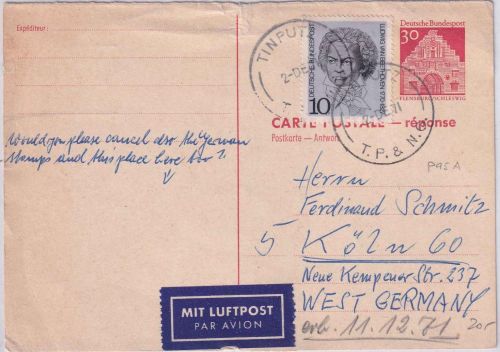 Expéditeur :
DEUTSCHE BUNDESPOST
10
LUDWIG VAN BEETHOVEN 1770-1827
Deutsche Bundespost
30
FLENSBURG/SCHLESWIG
TINPUT
2-DE
T.P. & N.G.
CARTE POSTALE — réponse
Postkarte - Antwort
Would you please cancel also the German
stamps and this place here too?
P95A
Herrn
Ferdinand Schmitz
5 Köln 60
Neue Kempener Str. 237
WEST GERMANY
erh. 11.12.71
20.-
MIT LUFTPOST
PAR AVION